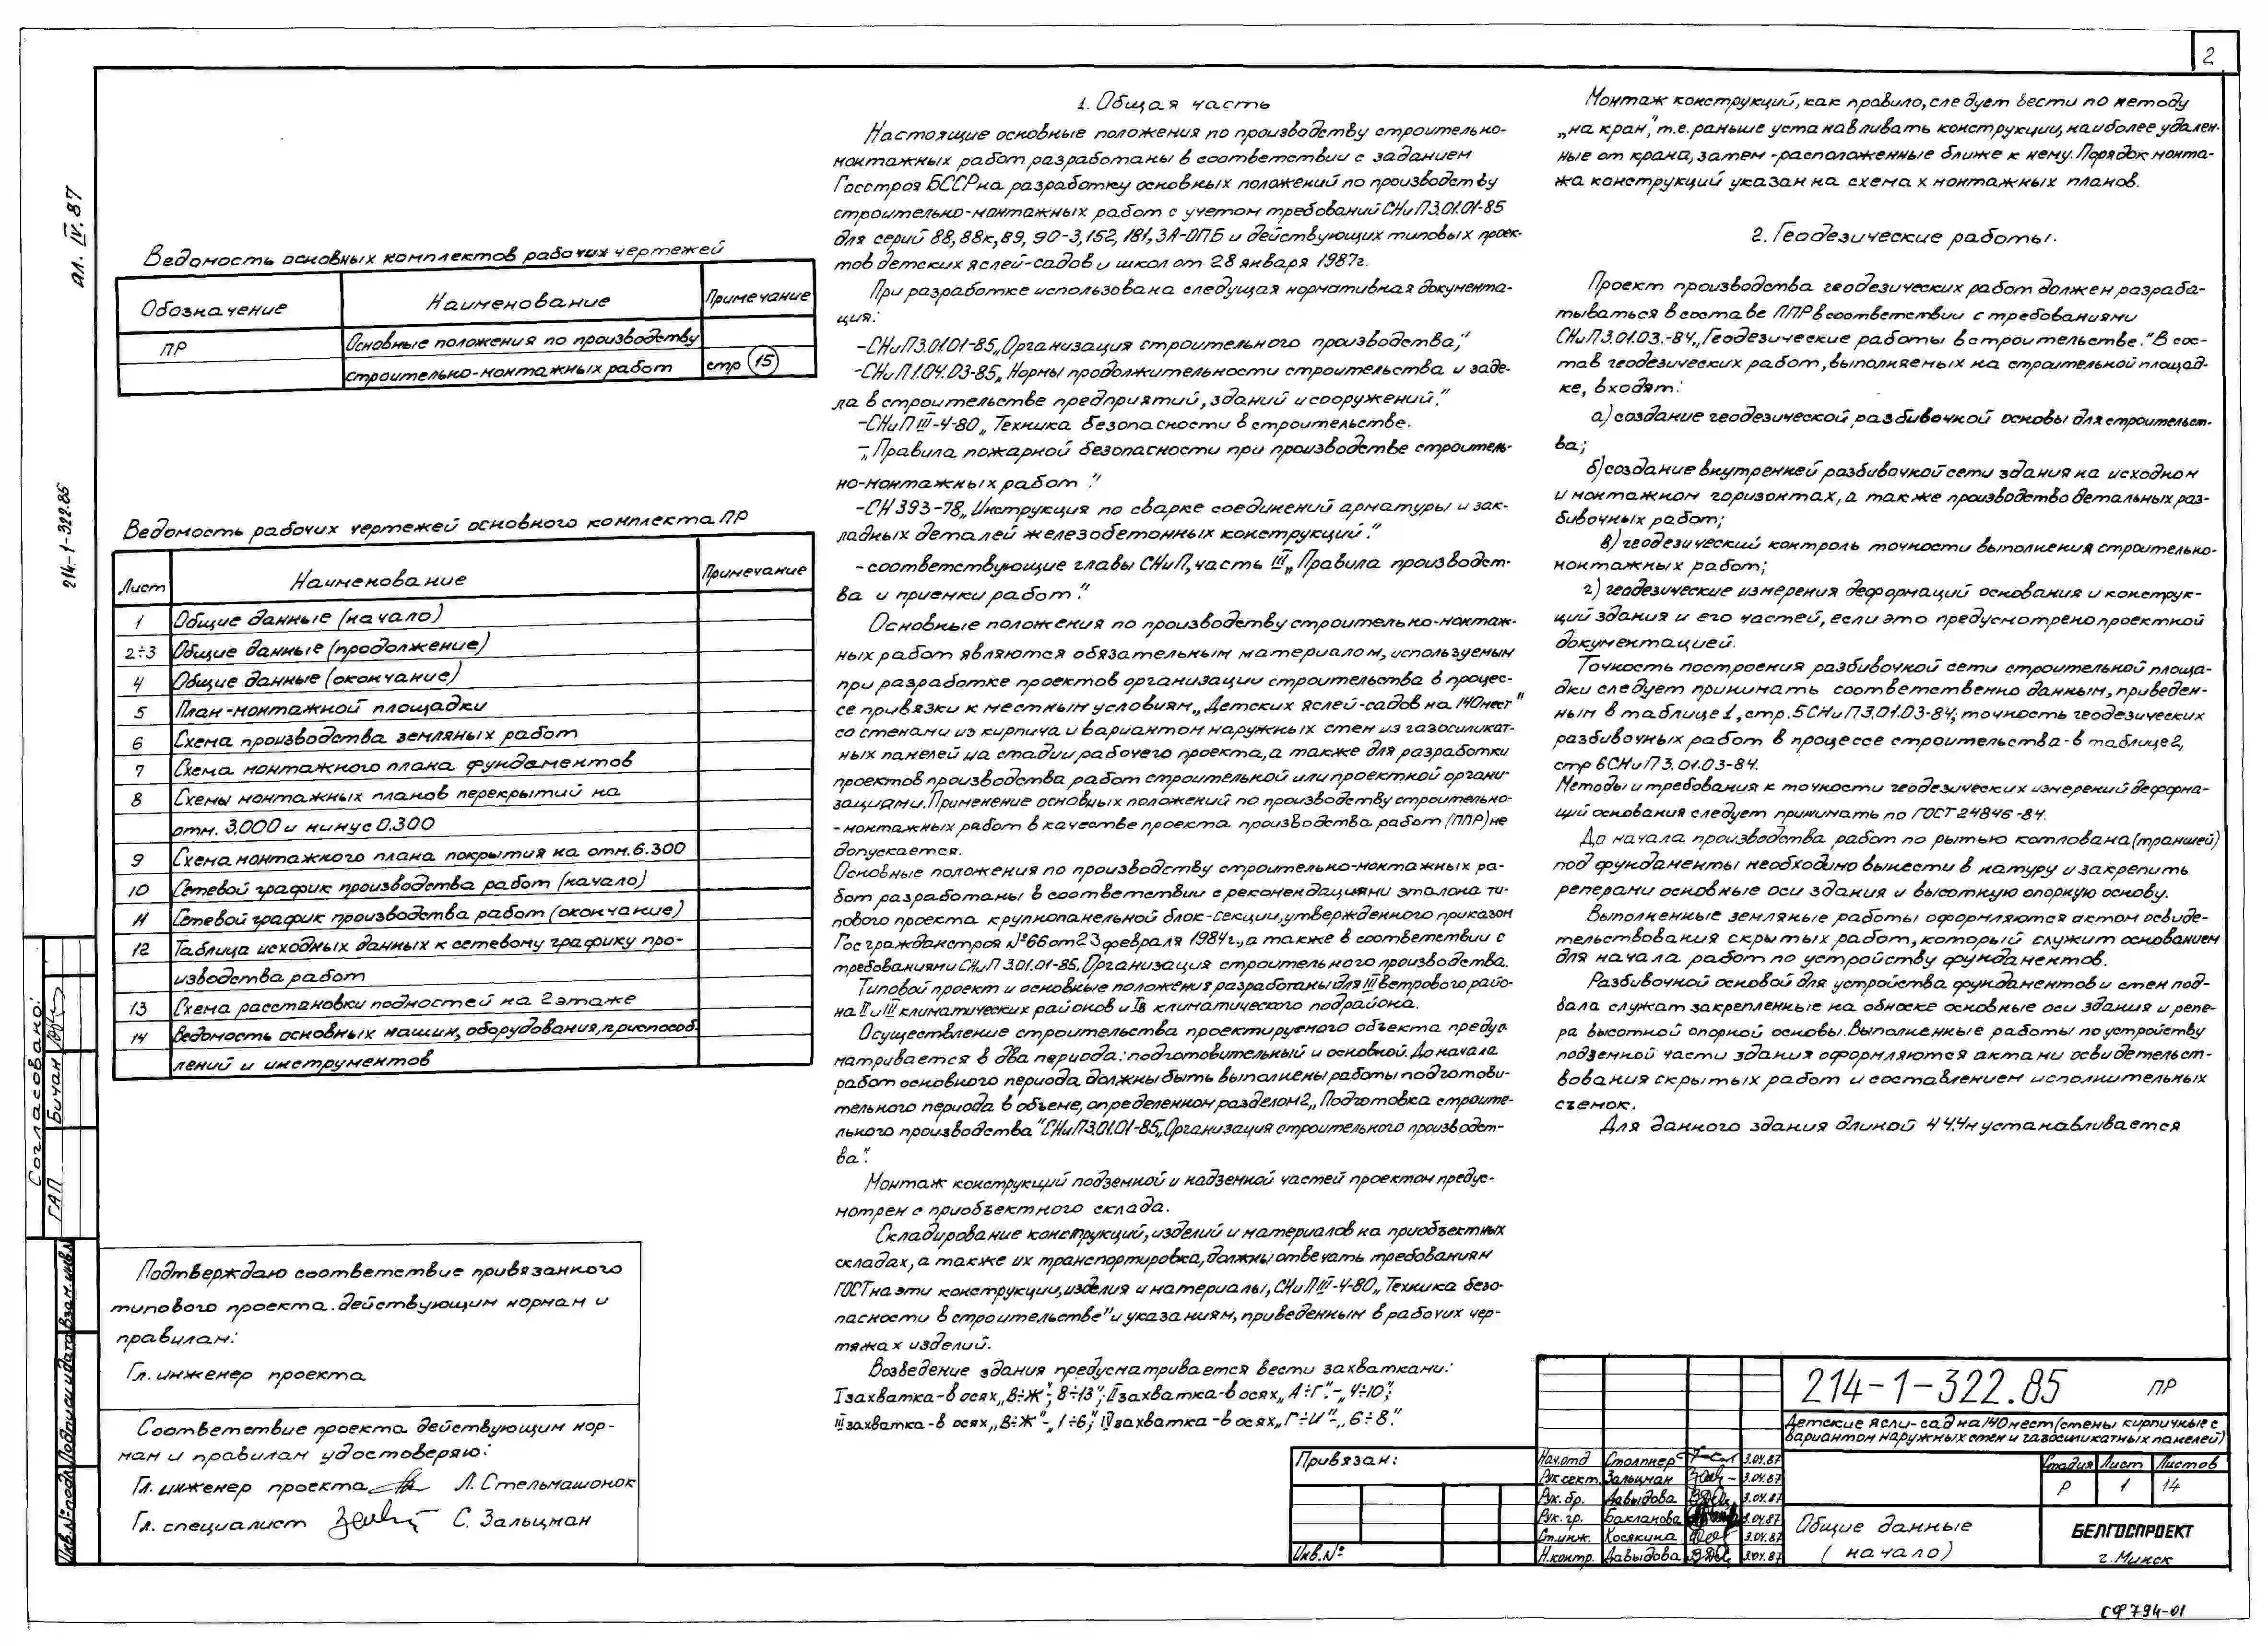 2
Ал. IV. 87
214-1-322.85
Ведомость основных комплектов рабочих чертежей
Обозначение Наименование Примечание
ПР Основные положения по производству
строительно-монтажных работ стр 15
Ведомость рабочих чертежей основного комплекта ПР
Лист Наименование Примечание
1 Общие данные (начало)
2÷3 Общие данные (продолжение)
4 Общие данные (окончание)
5 План-монтажной площадки
6 Схема производства земляных работ
7 Схема монтажного плана фундаментов
8 Схемы монтажных планов перекрытий на
отм. 3.000 и минус 0.300
9 Схема монтажного плана покрытия на отм. 6.300
10 Сетевой график производства работ (начало)
11 Сетевой график производства работ (окончание)
12 Таблица исходных данных к сетевому графику про-
изводства работ
13 Схема расстановки подмостей на 2 этаже
14 Ведомость основных машин, оборудования, приспособ-
лений и инструментов
Согласовано:
ГАП Бичан
Взам. инв.
Подпись и дата
Инв. № подл.
Подтверждаю соответствие привязанного
типового проекта действующим нормам и
правилам:
Гл. инженер проекта
Соответствие проекта действующим нор-
мам и правилам удостоверяю:
Гл. инженер проекта Л. Стельмашонок
Гл. специалист С. Зальцман
1. Общая часть
Настоящие основные положения по производству строительно-
монтажных работ разработаны в соответствии с заданием
Госстроя БССР на разработку основных положений по производству
строительно-монтажных работ с учетом требований СНиП 3.01.01-85
для серий 88, 88к, 89, 90-3, 152, 181, 3А-ОПБ и действующих типовых проек-
тов детских яслей-садов и школ от 28 января 1987г.
При разработке использована следущая нормативная документа-
ция:
-СНиП 3.01.01-85 „Организация строительного производства";
-СНиП 1.04.03-85 „Нормы продолжительности строительства и заде-
ла в строительстве предприятий, зданий и сооружений."
-СНиП III-4-80 „Техника безопасности в строительстве.
-„Правила пожарной безопасности при производстве строитель-
но-монтажных работ."
-СН 393-78 „Инструкция по сварке соединений арматуры и зак-
ладных деталей железобетонных конструкций."
-соответствующие главы СНиП, часть III „Правила производст-
ва и приемки работ."
Основные положения по производству строительно-монтаж-
ных работ являются обязательным материалом, используемым
при разработке проектов организации строительства в процес-
се привязки к местным условиям „Детских яслей-садов на 140 мест"
со стенами из кирпича и вариантом наружных стен из газосиликат-
ных панелей на стадии рабочего проекта, а также для разработки
проектов производства работ строительной или проектной органи-
зациями. Применение основных положений по производству строительно-
-монтажных работ в качестве проекта производства работ (ППР) не
допускается.
Основные положения по производству строительно-монтажных ра-
бот разработаны в соответствии с рекомендациями эталона ти-
пового проекта крупнопанельной блок-секции, утвержденного приказом
Госгражданстроя №66 от 23 февраля 1984г., а также в соответствии с
требованиями СНиП 3.01.01-85. Организация строительного производства.
Типовой проект и основные положения разработаны для III ветрового райо-
на II и III климатических районов и Iв климатического подрайона.
Осуществление строительства проектируемого объекта преду-
матривается в два периода: подготовительный и основной. До начала
работ основного периода должны быть выполнены работы подготови-
тельного периода в объеме, определенном разделом 2 „Подготовка строите-
льного производства" СНиП 3.01.01-85 „Организация строительного производст-
ва".
Монтаж конструкций подземной и надземной частей проектом предус-
мотрен с приобъектного склада.
Складирование конструкций, изделий и материалов на приобъектных
складах, а также их транспортировка, должны отвечать требованиям
ГОСТ на эти конструкции, изделия и материалы, СНиП III-4-80 „Техника безо-
пасности в строительстве" и указаниям, приведенным в рабочих чер-
тяжах изделий.
Возведение здания предусматривается вести захватками:
I захватка-в осях „В÷Ж"; 8÷13"; II захватка-в осях „А÷Г"-„4÷10";
III захватка-в осях „В÷Ж"-„1÷6"; IV захватка-в осях „Г÷И"-„6÷8."
Монтаж конструкций, как правило, следует вести по методу
„на кран", т.е. раньше устанавливать конструкции, наиболее удален-
ные от крана, затем-расположенные ближе к нему. Порядок монта-
жа конструкций указан на схемах монтажных планов.
2. Геодезические работы.
Проект производства геодезических работ должен разраба-
тываться в составе ППР в соответствии с требованиями
СНиП 3.01.03.-84 „Геодезические работы в строительстве." В сос-
тав геодезических работ, выполняемых на строительной площад-
ке, входят:
а) создание геодезической разбивочной основы для строительст-
ва;
б) создание внутренней разбивочной сети здания на исходном
и монтажном горизонтах, а также производство детальных раз-
бивочных работ;
в) геодезический контроль точности выполнения строительно-
монтажных работ;
г) геодезические измерения деформаций основания и конструк-
ций здания и его частей, если это предусмотрено проектной
документацией.
Точность построения разбивочной сети строительной площа-
дки следует принимать соответственно данным, приведен-
ным в таблице 1, стр. 5 СНиП 3.01.03-84; точность геодезических
разбивочных работ в процессе строительства-в таблице 2,
стр 6 СНиП 3.01.03-84.
Методы и требования к точности геодезических измерений деформа-
ций основания следует принимать по ГОСТ 24846-84.
До начала производства работ по рытью котлована (траншей)
под фундаменты необходимо вынести в натуру и закрепить
реперами основные оси здания и высотную опорную основу.
Выполненные земляные работы оформляются актом освиде-
тельствования скрытых работ, который служит основанием
для начала работ по устройству фундаментов.
Разбивочной основой для устройства фундаментов и стен под-
вала служат закрепленные на обноске основные оси здания и репе-
ра высотной опорной основы. Выполненные работы по устройству
подземной части здания оформляются актами освидетельст-
вования скрытых работ и составлением исполнительных
съемок.
Для данного здания длиной 44.4м устанавливается
Привязан:
Инв. №
Нач. отд Столпнер 3.04.87
Рук. сект. Зальцман 3.04.87
Рук. бр. Давыдова 3.04.87
Рук. гр. Бакланова 3.04.87
Ст. инж. Косякина 3.04.87
Н. контр. Давыдова 3.04.87
214-1-322.85 ПР
Детские ясли-сад на 140 мест (стены кирпичные с
вариантом наружных стен и газосиликатных панелей)
Стадия Лист Листов
Р 1 14
Общие данные
(начало)
БЕЛГОСПРОЕКТ
г. Минск
СФ 794-01